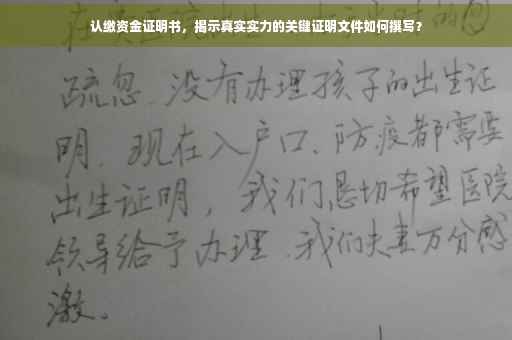 认缴资金证明书，揭示真实实力的关键证明文件如何撰写？
疏忽、没有办理孩子的出生证
明、现在入户口、防疫都需要
出生证明，我们恳切希望医院
领导给予办理、我们夫妻万分感
激。